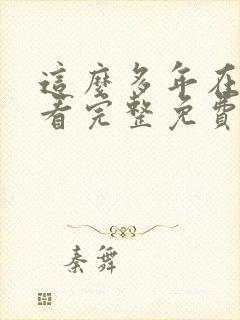 這麼多年在
看完整免費
秦舞